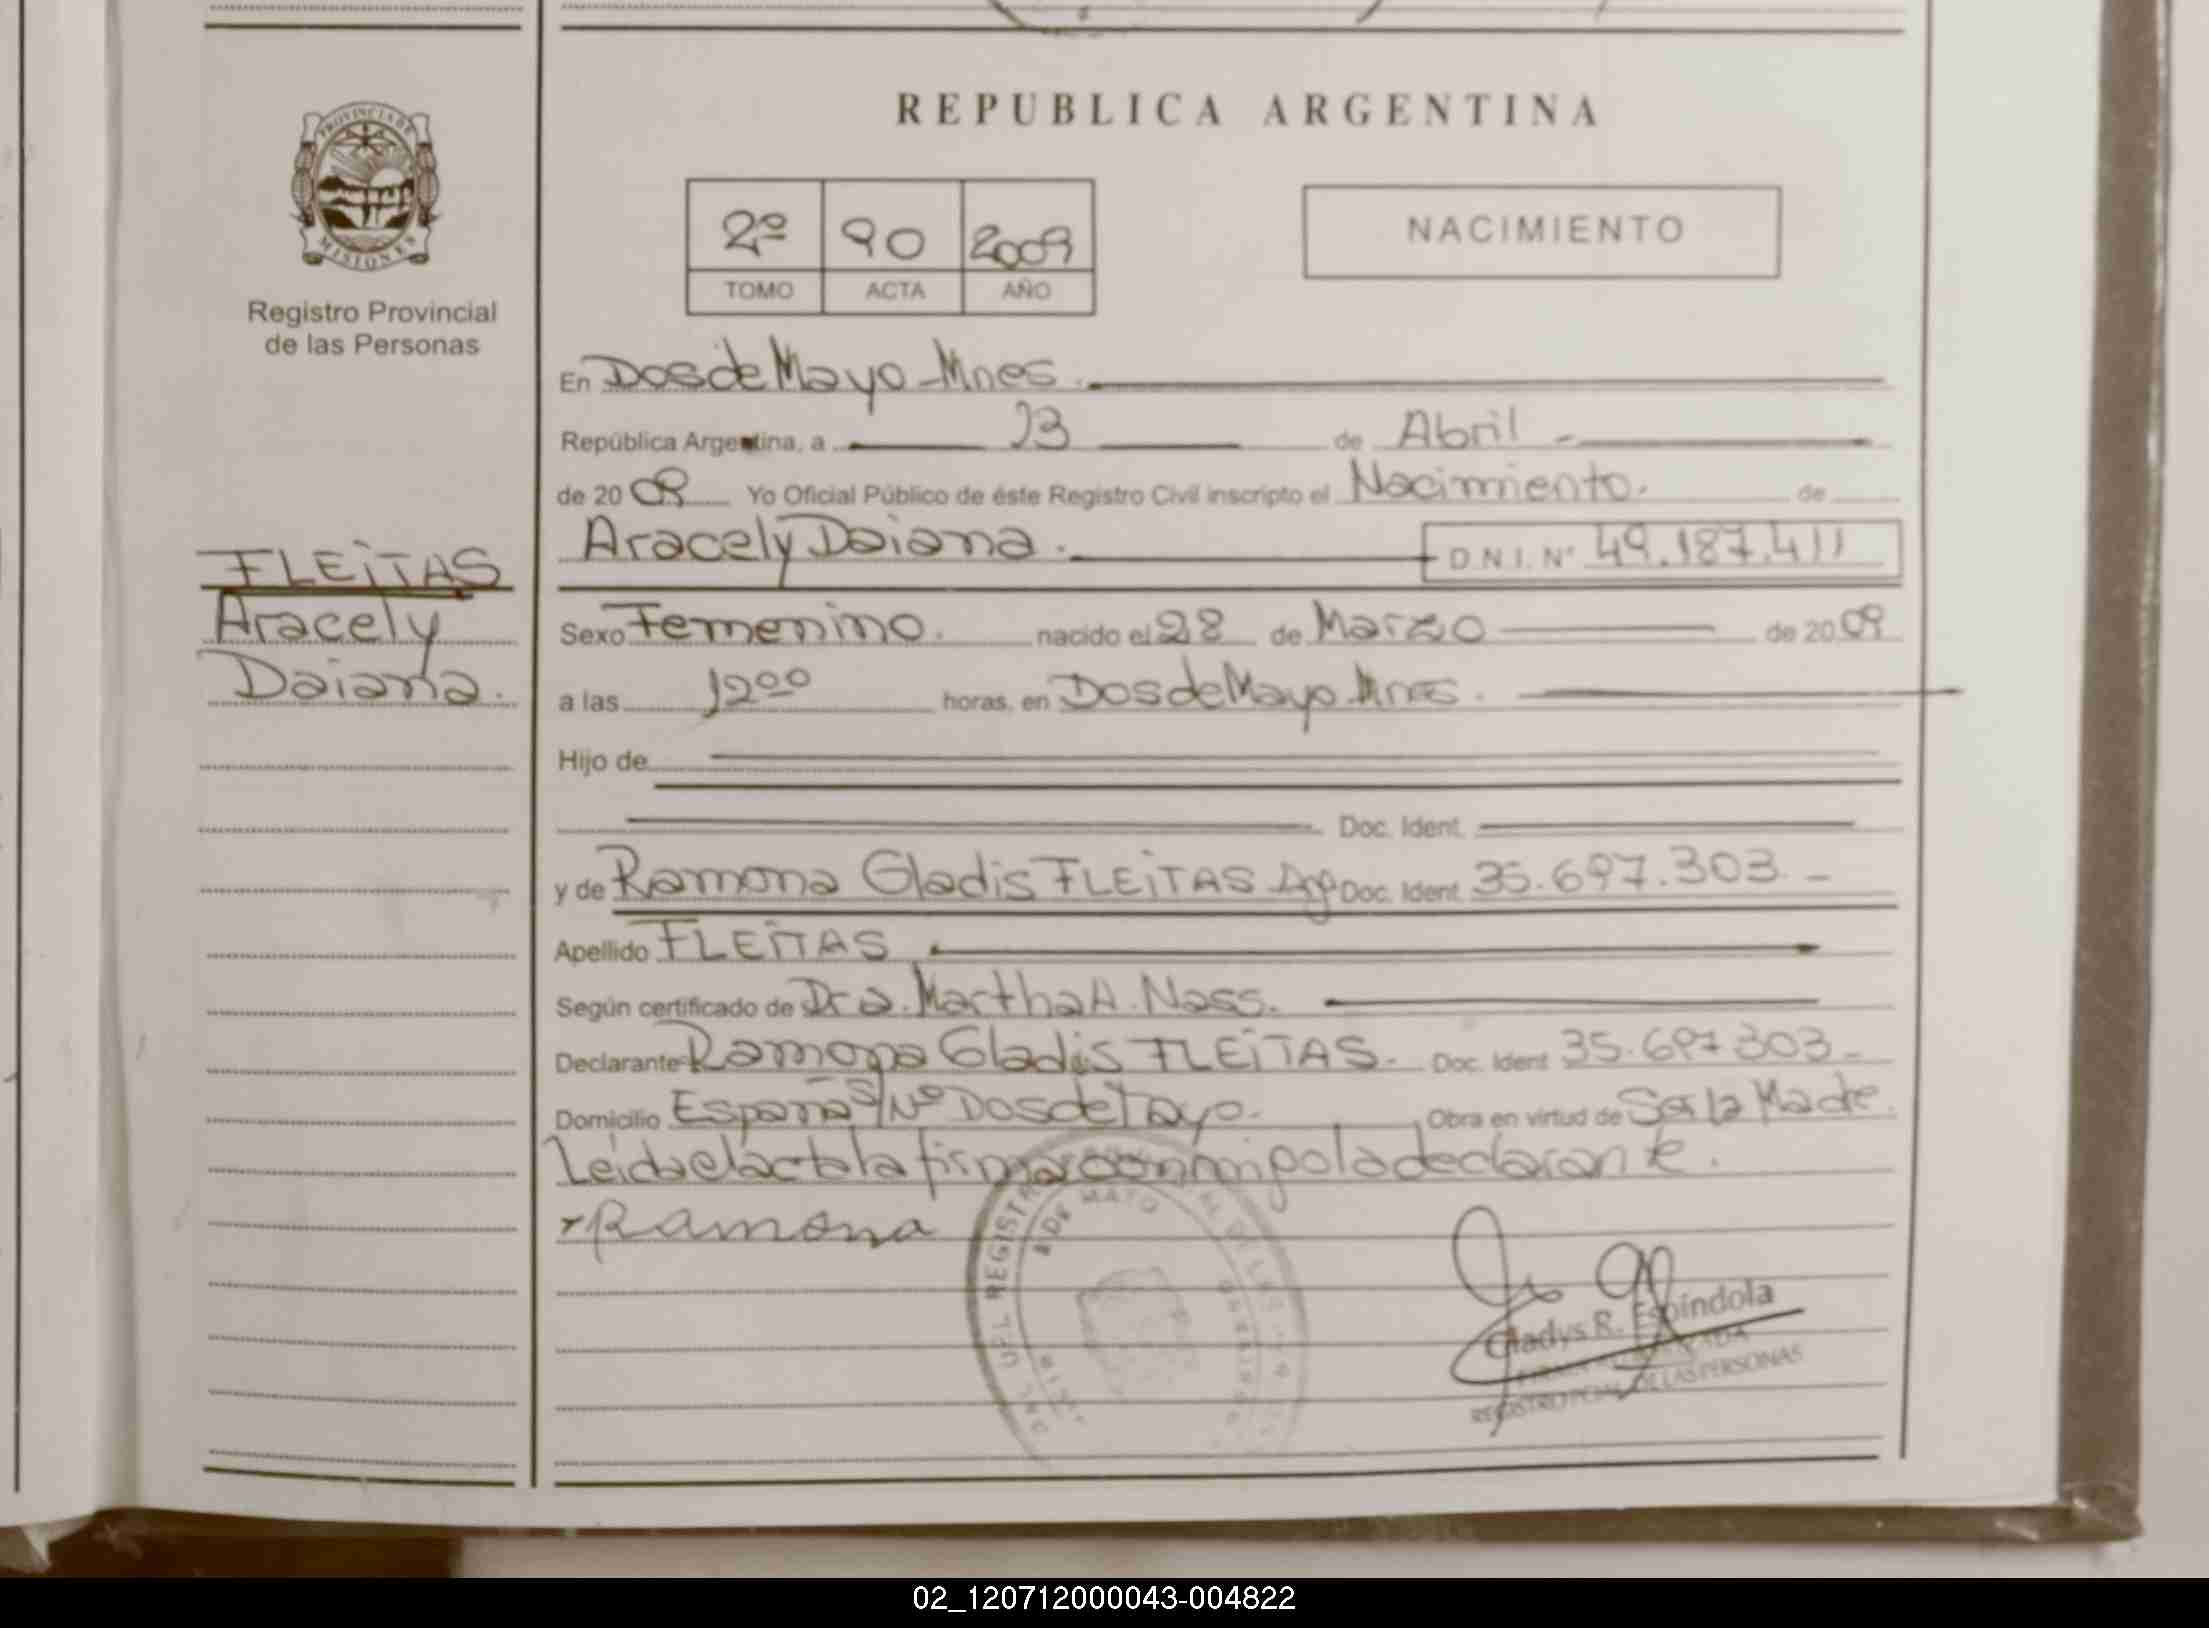 PROVINCIA DE
MISIONES
Registro Provincial
de las Personas
FLEITAS
Aracely
Daiana.
REPUBLICA ARGENTINA
2º 90 2009
TOMO ACTA AÑO
NACIMIENTO
En Dos de Mayo - Mnes.
República Argentina, a 13 de Abril -
de 2009 Yo Oficial Público de éste Registro Civil inscripto el Nacimiento. de
Aracely Daiana. D.N.I. Nº 49.187.411
Sexo Femenino. nacido el 28 de Marzo de 2009
a las 12ºº horas, en Dos de Mayo Mnes.
Hijo de
Doc. Ident.
y de Ramona Gladis FLEITAS Arg Doc. Ident. 35.697.303. -
Apellido FLEITAS
Según certificado de Dra. Martha A. Nass.
Declarante Ramona Gladis FLEITAS. Doc. Ident 35.697303 -
Domicilio España S/Nº Dos de Mayo. Obra en virtud de Ser la Madre.
Leida el acta la firma conmigo la declarante.
x Ramona
Gladys R. Espíndola
REGISTRO PCIAL. DE LAS PERSONAS
02_120712000043-004822